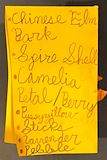 Chinese Elm
Bark
Spire Shell
Camelia
Petal/Berry
Pussywillow
Sticks
Lavender
Pebble